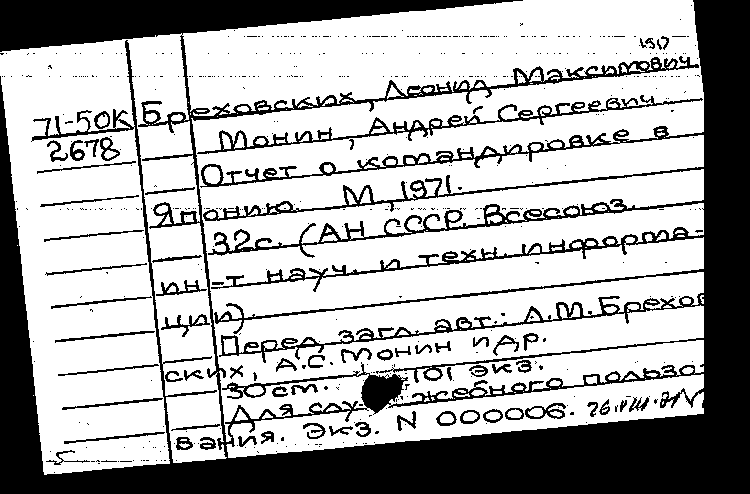 1517
71-50К Бреховских, Леонид Максимович
2678 Монин, Андрей Сергеевич
Отчет о командировке в
Японию. М., 1971.
32с. (АН СССР. Всесоюз.
ин-т науч. и техн. информа-
ции).
Перед загл. авт.: Л.М. Брехов
ских, А.С. Монин и др.
30 см. 101 экз.
Для слу жебного пользо-
вания. Экз. N 000006.
5